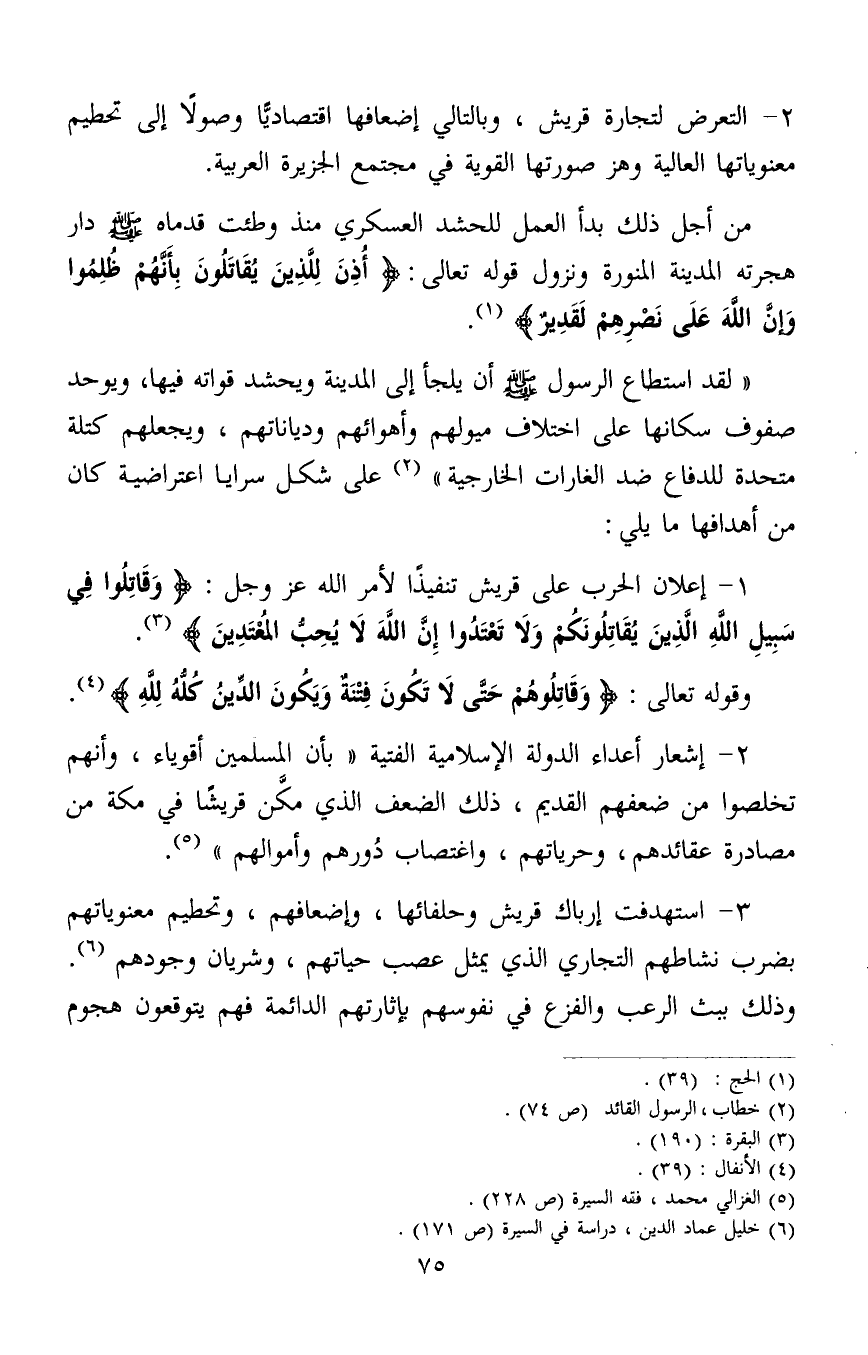 ٢- التعرض لتجارة قريش ، وبالتالي إضعافها اقتصاديًّا وصولًا إلى تحطيم
معنوياتها العالية وهز صورتها القوية في مجتمع الجزيرة العربية.
من أجل ذلك بدأ العمل للحشد العسكري منذ وطئت قدماه ﷺ دار
هجرته المدينة المنورة ونزول قوله تعالى : ﴿ أُذِنَ لِلَّذِينَ يُقَاتَلُونَ بِأَنَّهُمْ ظُلِمُوا
وَإِنَّ اللَّهَ عَلَى نَصْرِهِمْ لَقَدِيرٌ ﴾ (١).
« لقد استطاع الرسول ﷺ أن يلجأ إلى المدينة ويحشد قواته فيها، ويوحد
صفوف سكانها على اختلاف ميولهم وأهوائهم ودياناتهم ، ويجعلهم كتلة
متحدة للدفاع ضد الغارات الخارجية » (٢) على شكل سرايا اعتراضية كان
من أهدافها ما يلي :
١- إعلان الحرب على قريش تنفيذًا لأمر الله عز وجل : ﴿ وَقَاتِلُوا فِي
سَبِيلِ اللَّهِ الَّذِينَ يُقَاتِلُونَكُمْ وَلَا تَعْتَدُوا إِنَّ اللَّهَ لَا يُحِبُّ المُعْتَدِينَ ﴾ (٣).
وقوله تعالى : ﴿ وَقَاتِلُوهُمْ حَتَّى لَا تَكُونَ فِتْنَةٌ وَيَكُونَ الدِّينُ كُلُّهُ لِلَّهِ ﴾ (٤).
٢- إشعار أعداء الدولة الإسلامية الفتية « بأن المسلمين أقوياء ، وأنهم
تخلصوا من ضعفهم القديم ، ذلك الضعف الذي مكَّن قريشًا في مكة من
مصادرة عقائدهم، وحرياتهم ، واغتصاب دُورهم وأموالهم » (٥).
٣- استهدفت إرباك قريش وحلفائها ، وإضعافهم ، وتحطيم معنوياتهم
بضرب نشاطهم التجاري الذي يمثل عصب حياتهم ، وشريان وجودهم (٦).
وذلك ببث الرعب والفزع في نفوسهم بإثارتهم الدائمة فهم يتوقعون هجوم
(١) الحج : (٣٩) .
(٢) خطاب ، الرسول القائد (ص ٧٤) .
(٣) البقرة : (١٩٠) .
(٤) الأنفال : (٣٩) .
(٥) الغزالي محمد ، فقه السيرة (ص ٢٢٨) .
(٦) خليل عماد الدين ، دراسة في السيرة (ص ١٧١) .
٧٥